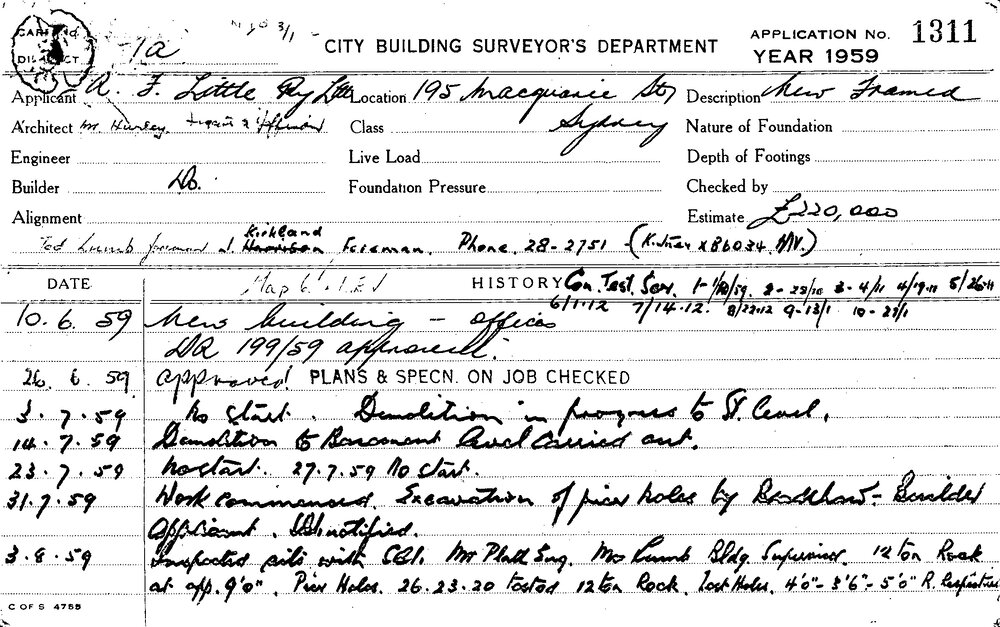 1a
CITY BUILDING SURVEYOR'S DEPARTMENT
APPLICATION No. 1311
YEAR 1959
Applicant R. F. Little Pty Ltd Location 195 Macquarie St, Description New Framed
Architect Mr Hurley, Class Sydney Nature of Foundation
Engineer Live Load Depth of Footings
Builder Do. Foundation Pressure Checked by
Alignment Estimate £220,000
Ted Lumb foreman Kirkland Harrison Foreman. Phone. 28-2751
DATE HISTORY Con. Test. Ser.
6/1.12 7/14.12. 8/22.12 9-13/1 10-21/1
10. 6. 59 New building – offices
DA 199/59 approved.
26. 6. 59 approved PLANS & SPECN. ON JOB CHECKED
3. 7. 59 No start. Demolition in progress to St. level.
14. 7. 59 Demolition to Basement level carried out.
23. 7. 59 No start. 27.7.59 No start.
31. 7. 59 Work commenced. Excavation of pier holes by Builder
Applicant. notified.
3. 8. 59 Inspected pits with Mr Platt Eng. Lumb Bldg. Supervisor. 12 ton Rock
at app. 9'0". Pier Holes. 26.23.20 tested 12 ton Rock. Test Holes. 4'0" - 3'6" - 5'0" R.
C OF S 4755